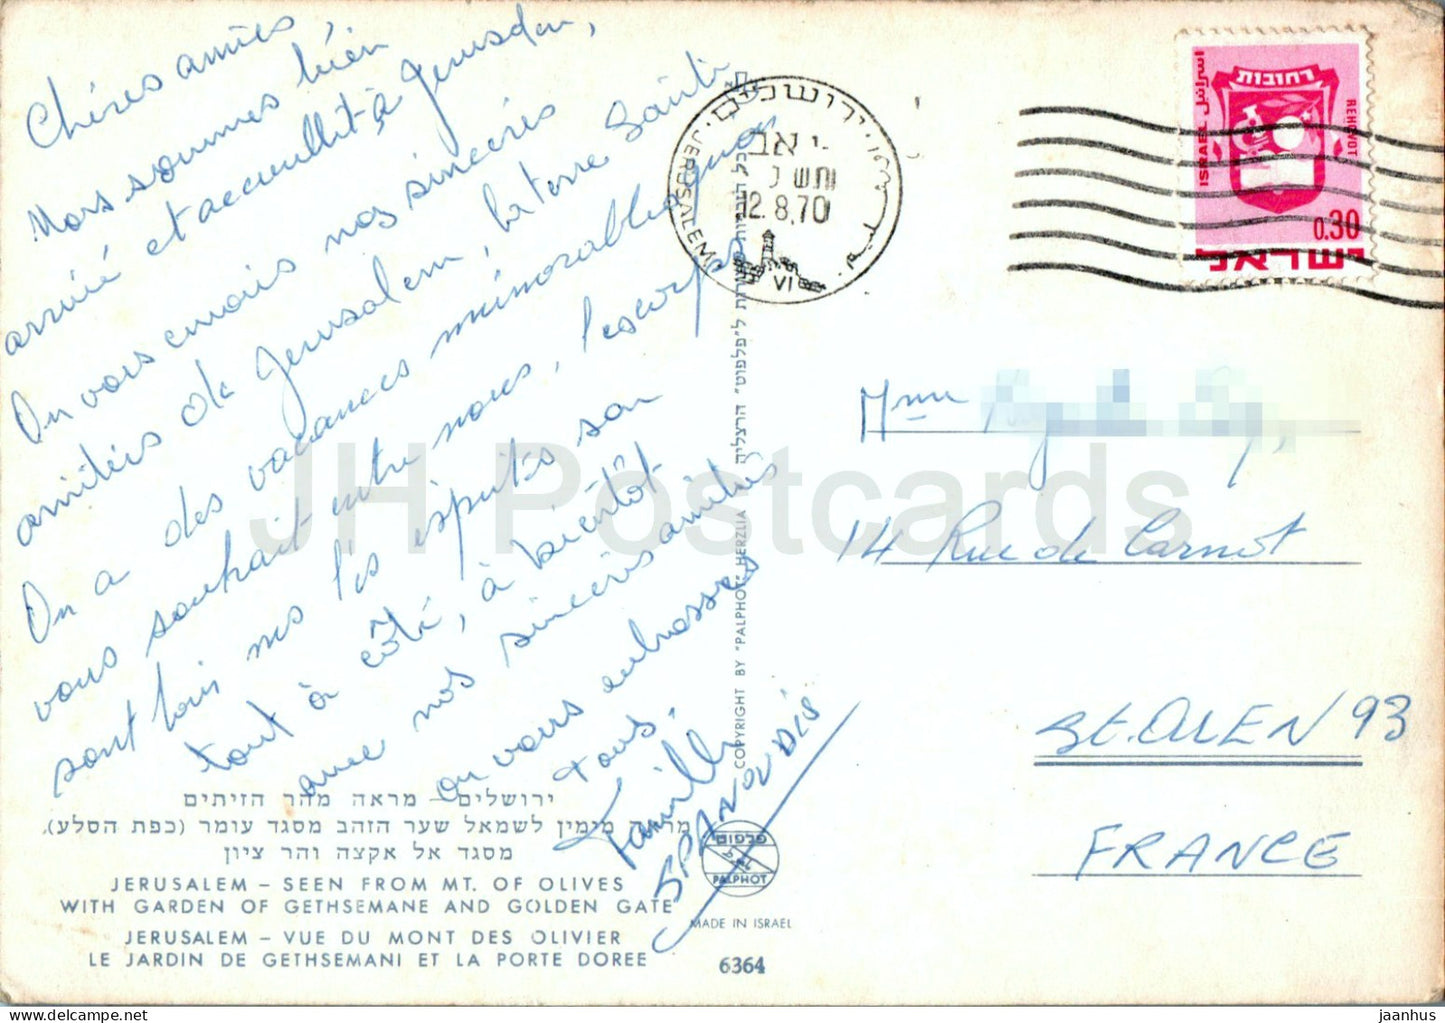 Chéres amies,
Nors sommes bién
arrivé et acceullit à Jerusalem,
On vous envois nos sincéres
amitiérs de Jerusalem, la terre Sainte
On a des vacances mémorables
vous souhait entre nous, les corps
sont loin mes les esprits son
tout à côté, à bientôt
avec nos sincéris amitiés
on vous embrasses
tous.
Famille
SPANOUDIS
ירושלים – מראה מהר הזיתים
מימין לשמאל שער הזהב מסגד עומר (כפת הסלע),
מסגד אל אקצה והר ציון
JERUSALEM – SEEN FROM MT. OF OLIVES
WITH GARDEN OF GETHSEMANE AND GOLDEN GATE
JERUSALEM – VUE DU MONT DES OLIVIER
LE JARDIN DE GETHSEMANI ET LA PORTE DOREE
COPYRIGHT BY "PALPHOT" HERZLIA
כל הזכויות שמורות ל"פלפוט" הרצליה
פלפוט
PALPHOT
MADE IN ISRAEL
6364
ירושלים
JERUSALEM
12.8.70
VI
רחובות
REHOVOT
ISRAEL
اسرائيل
0.30
ישראל
Mme
14 Rue de Carnot
St. OUEN 93
FRANCE
JH Postcards
jaanhus